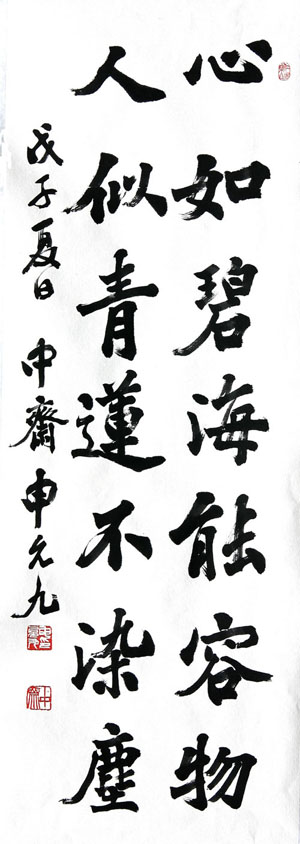 心如碧海能容物
人似青蓮不染塵
戊子夏日 中齋申元九